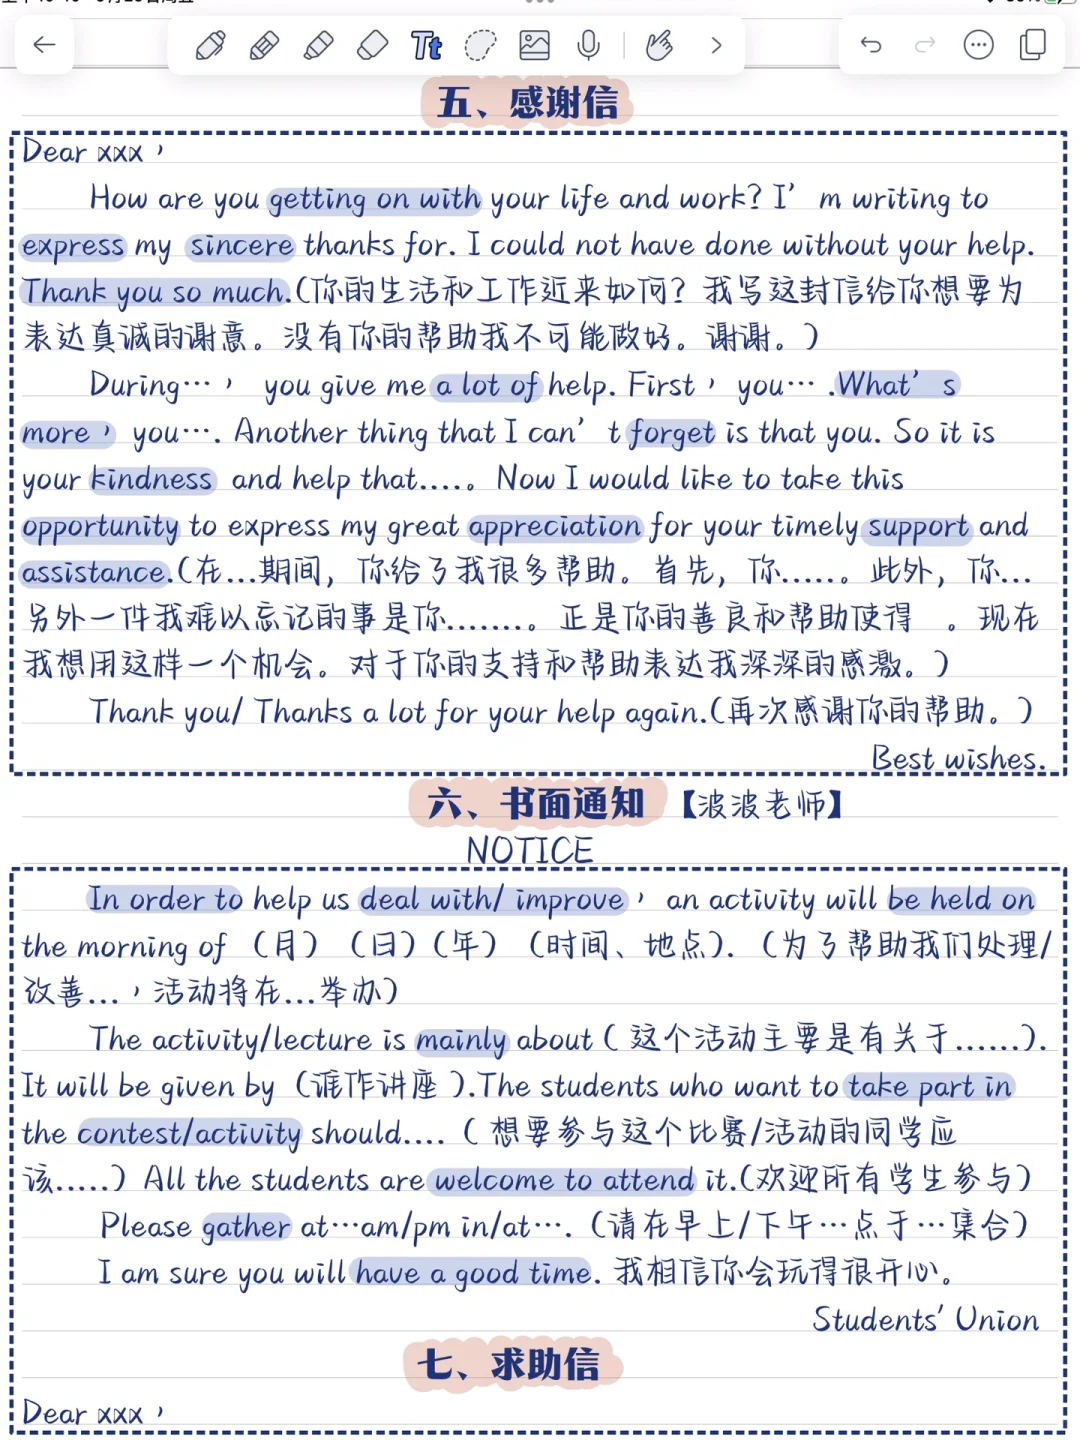 五、感谢信
Dear xxx，
How are you getting on with your life and work? I'm writing to
express my sincere thanks for. I could not have done without your help.
Thank you so much.(你的生活和工作近来如何？我写这封信给你想要为
表达真诚的谢意。没有你的帮助我不可能做好。谢谢。)
During…， you give me a lot of help. First，you… .What's
more，you…. Another thing that I can't forget is that you. So it is
your kindness and help that....。Now I would like to take this
opportunity to express my great appreciation for your timely support and
assistance.(在...期间，你给了我很多帮助。首先，你.....。此外，你...
另外一件我难以忘记的事是你.......。正是你的善良和帮助使得 。现在
我想用这样一个机会。对于你的支持和帮助表达我深深的感激。)
Thank you/ Thanks a lot for your help again.(再次感谢你的帮助。)
Best wishes.
六、书面通知【波波老师】
NOTICE
In order to help us deal with/ improve，an activity will be held on
the morning of （月）（日）（年）（时间、地点）.（为了帮助我们处理/
改善...，活动将在...举办）
The activity/lecture is mainly about ( 这个活动主要是有关于......).
It will be given by （谁作讲座 ).The students who want to take part in
the contest/activity should....（ 想要参与这个比赛/活动的同学应
该.....）All the students are welcome to attend it.(欢迎所有学生参与）
Please gather at…am/pm in/at….（请在早上/下午…点于…集合）
I am sure you will have a good time. 我相信你会玩得很开心。
Students' Union
七、求助信
Dear xxx，